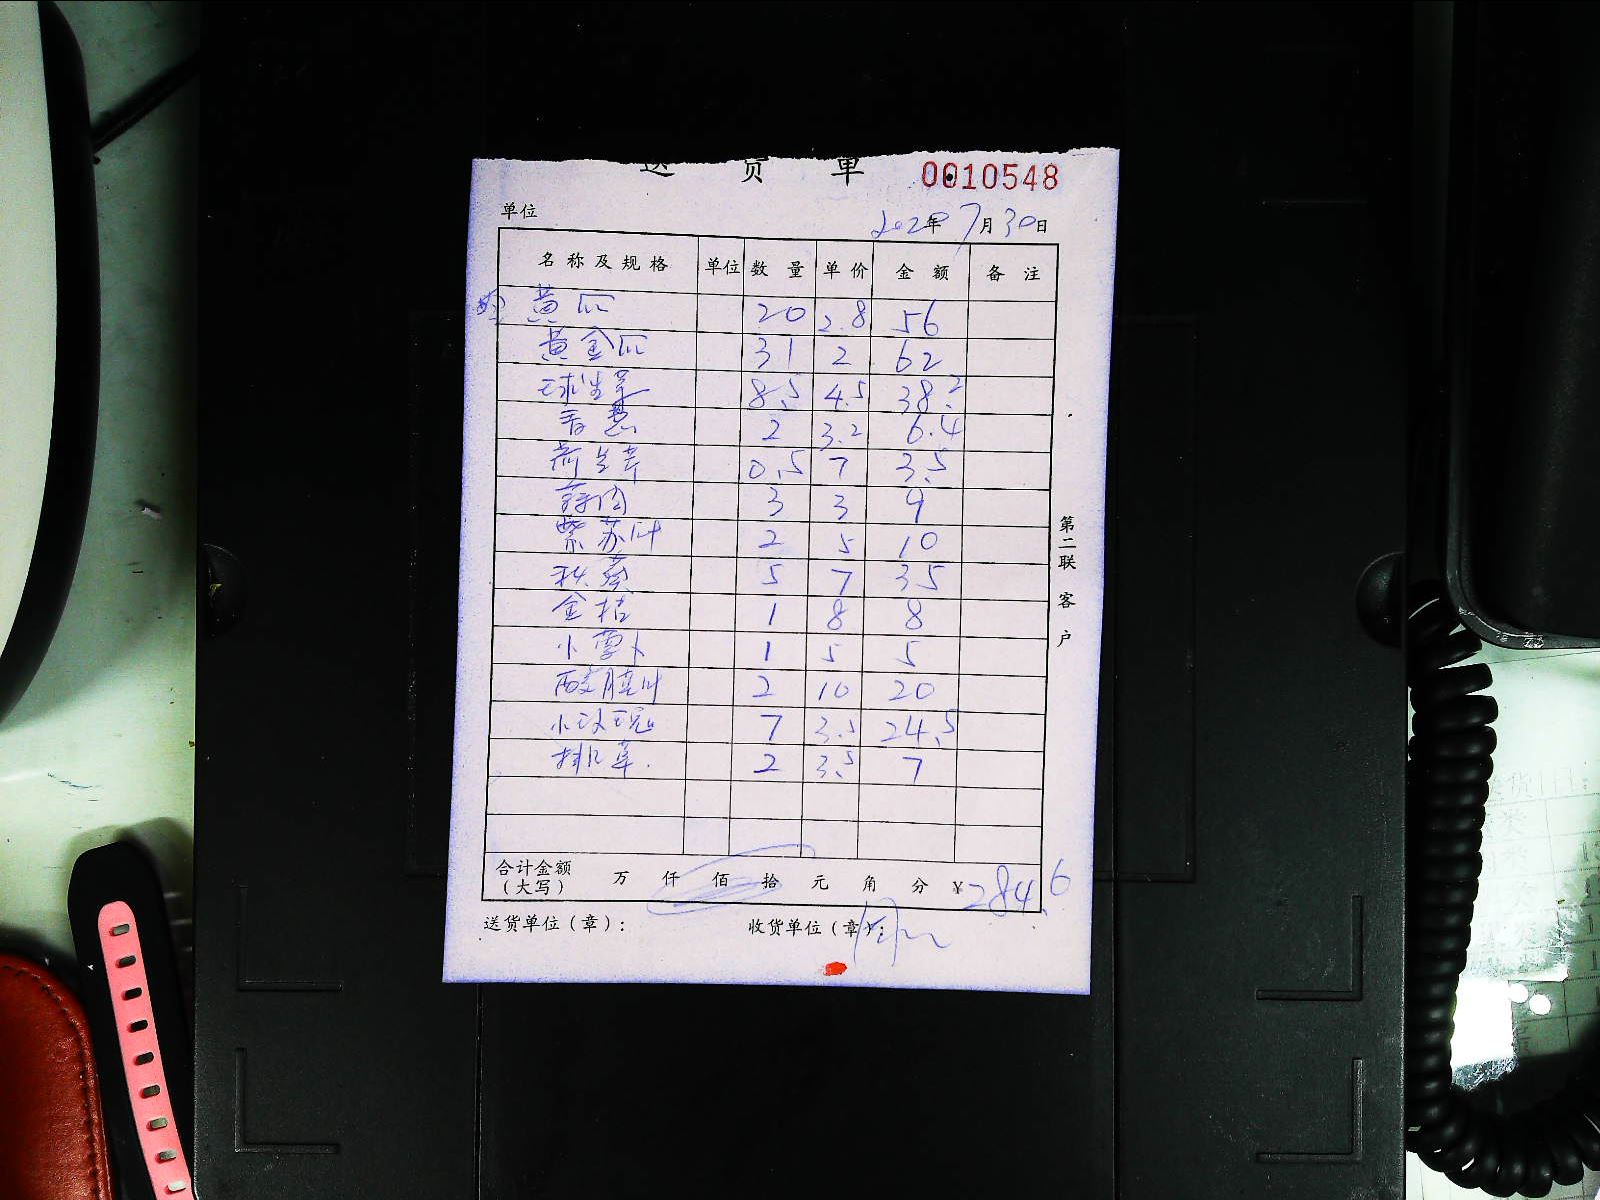 送 货 单 0010548
单位
2020年 7月30日
名称及规格 单位 数量 单价 金额 备注
黄瓜 20 2.8 56
黄金瓜 31 2 62
球生菜 8.5 4.5 38.2
香葱 2 3.2 6.4
荷兰芹 0.5 7 3.5
蒜肉 3 3 9
紫苏叶 2 5 10
秋葵 5 7 35
金桔 1 8 8
小萝卜 1 5 5
酸膜叶 2 10 20
小玫瑰 7 3.5 24.5
排草. 2 3.5 7
合计金额（大写） 万 仟 佰 拾 元 角 分 ¥284.6
送货单位（章）： 收货单位（章）：
第二联 客户